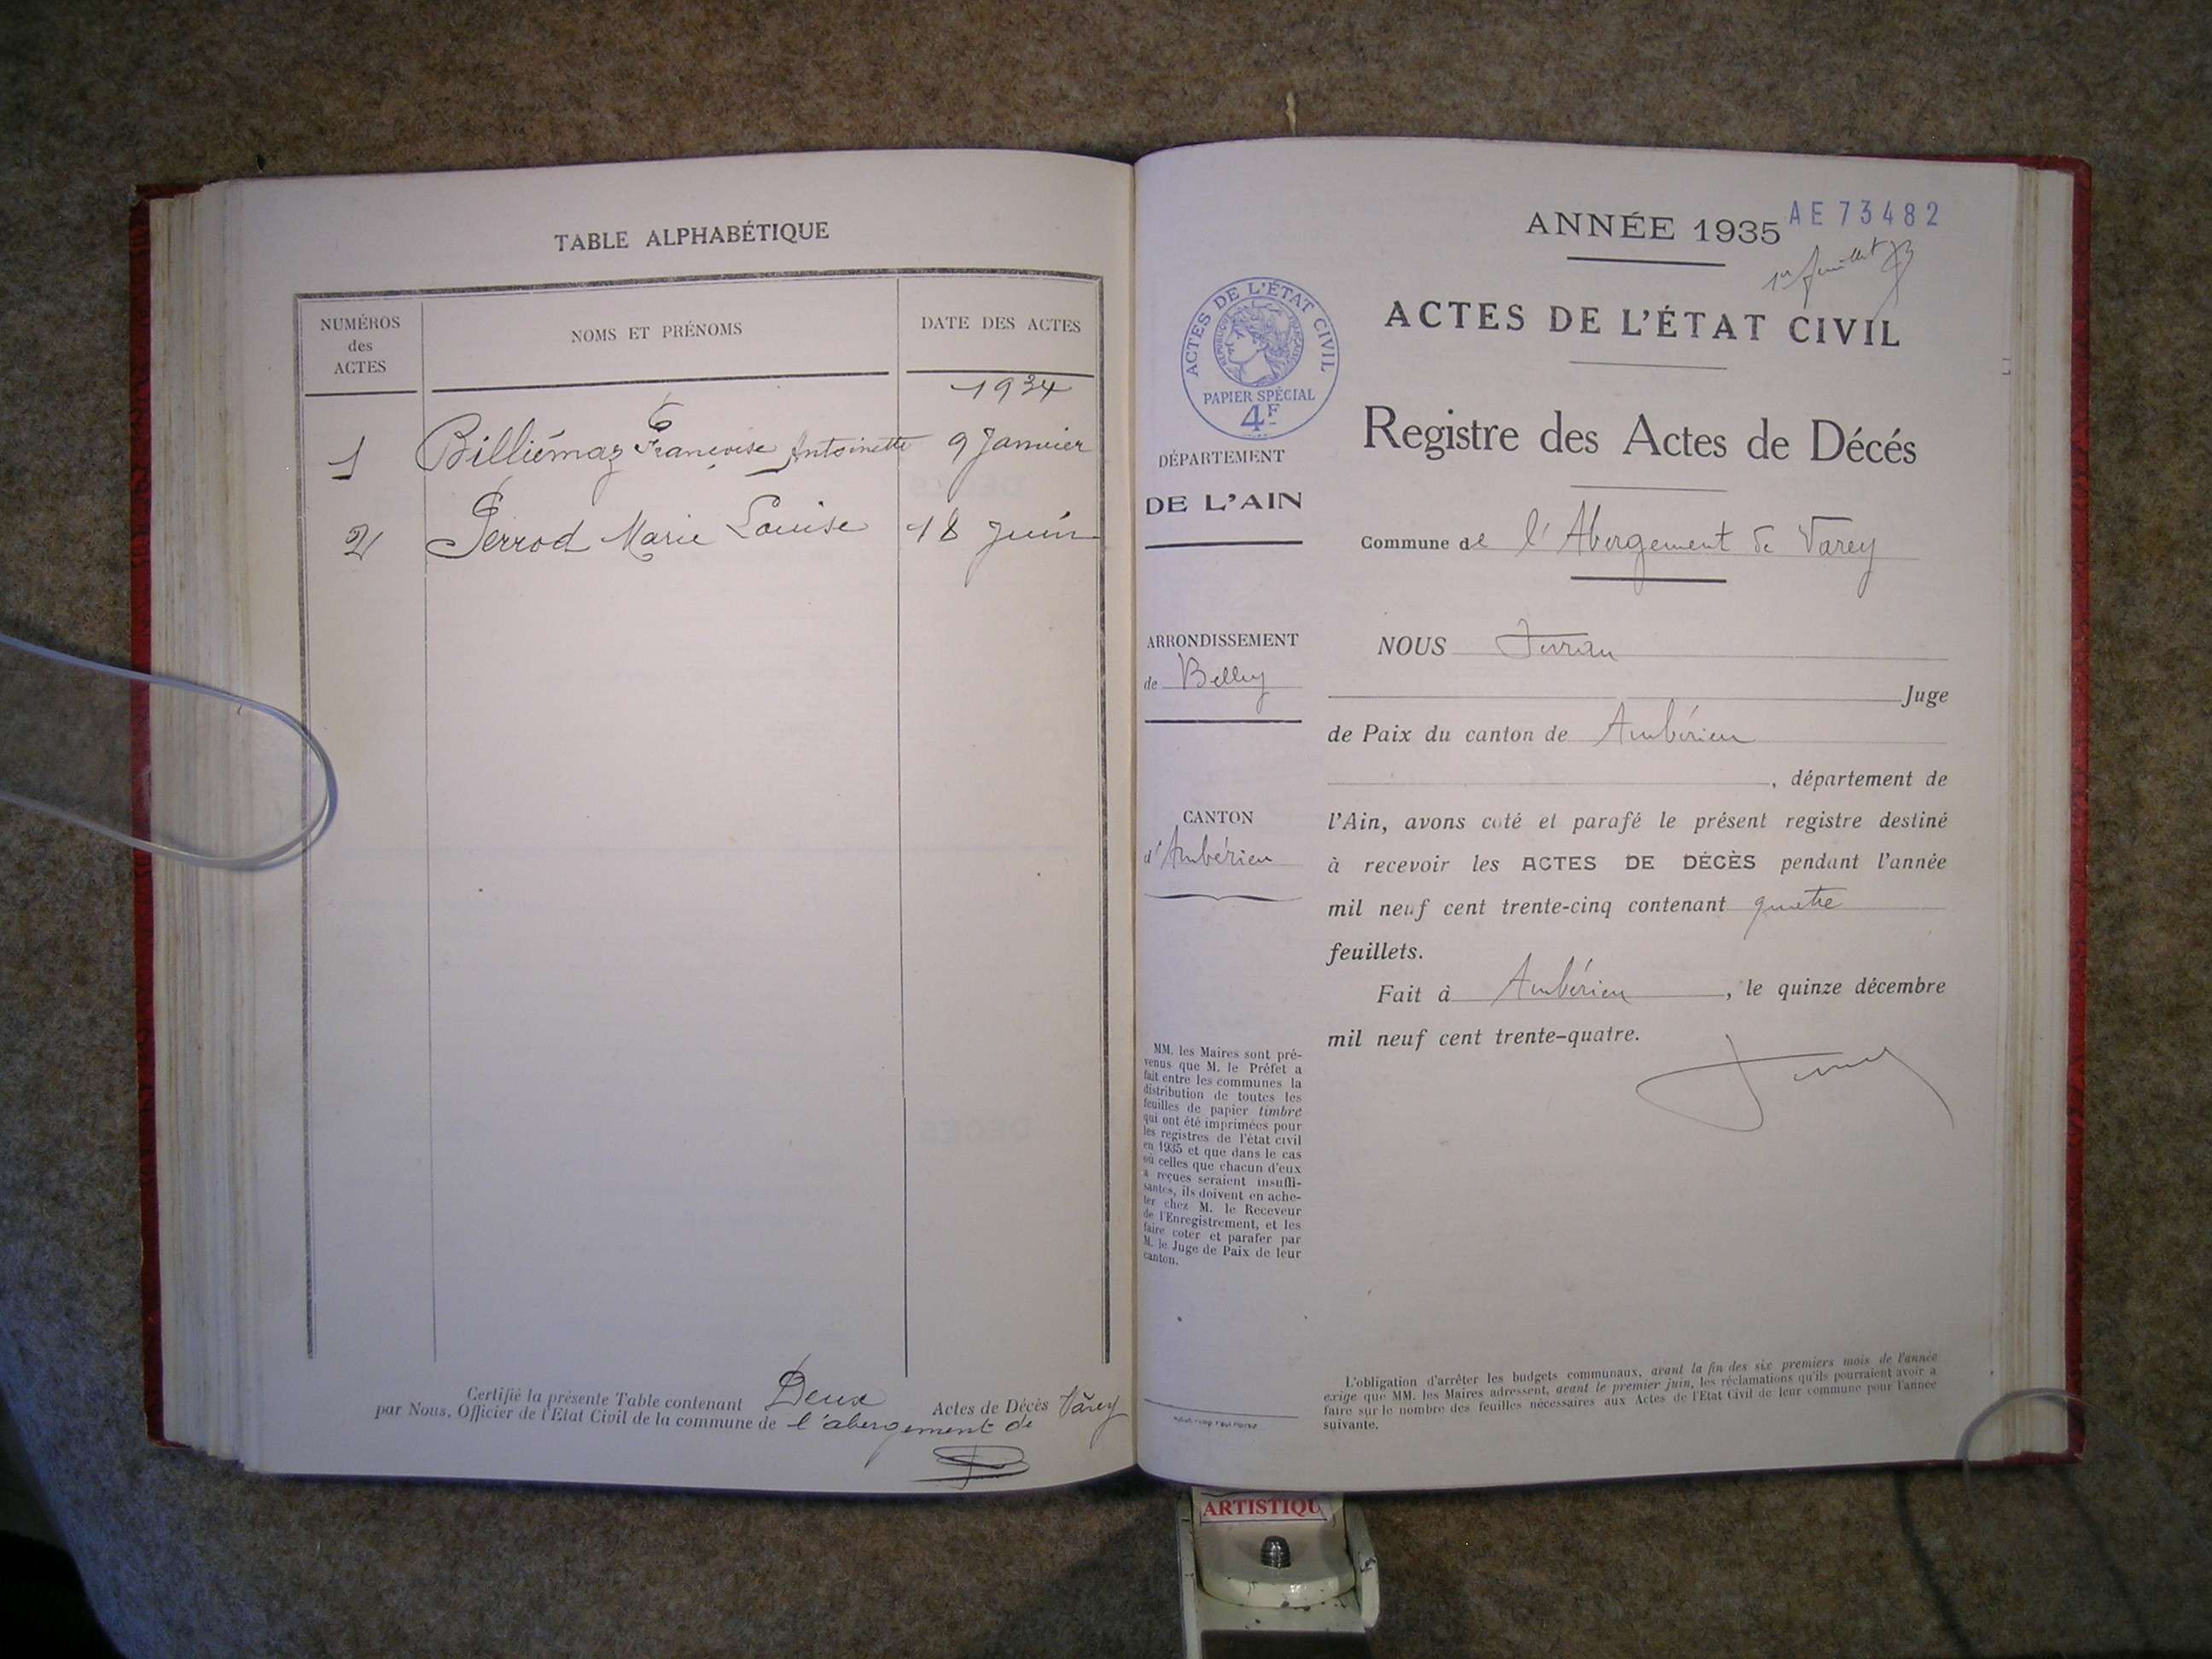 TABLE ALPHABÉTIQUE
NUMÉROS
des
ACTES
NOMS ET PRÉNOMS
DATE DES ACTES
1934
1 Billiémaz Françoise Antoinette 9 Janvier
2 Perrod Marie Louise 18 Juin
Certifié la présente Table contenant Deux Actes de Décès
par Nous, Officier de l'Etat Civil de la commune de l'abergement de Varey
ANNÉE 1935
AE 73482
1er feuillet
ACTES DE L'ÉTAT CIVIL
RÉPUBLIQUE FRANÇAISE
PAPIER SPÉCIAL
4F
ACTES DE L'ÉTAT CIVIL
Registre des Actes de Décés
DÉPARTEMENT
DE L'AIN
Commune de l'Abergement de Varey
ARRONDISSEMENT
de Belley
CANTON
d'Ambérieu
NOUS
Juge
de Paix du canton de Ambérieu
, département de
l'Ain, avons coté et parafé le présent registre destiné
à recevoir les ACTES DE DÉCÈS pendant l'année
mil neuf cent trente-cinq contenant quatre
feuillets.
Fait à Ambérieu, le quinze décembre
mil neuf cent trente-quatre.
MM. les Maires sont pré-
venus que M. le Préfet a
fait entre les communes la
distribution de toutes les
feuilles de papier timbré
qui ont été imprimées pour
les registres de l'état civil
en 1935 et que dans le cas
où celles que chacun d'eux
a reçues seraient insuffi-
santes, ils doivent en ache-
ter chez M. le Receveur
de l'Enregistrement, et les
faire coter et parafer par
M. le Juge de Paix de leur
canton.
L'obligation d'arrêter les budgets communaux, avant la fin des six premiers mois de l'année
exige que MM. les Maires adressent, avant le premier juin, les réclamations qu'ils pourraient avoir à
faire sur le nombre des feuilles nécessaires aux Actes de l'Etat Civil de leur commune pour l'année
suivante.
ARTISTIQU